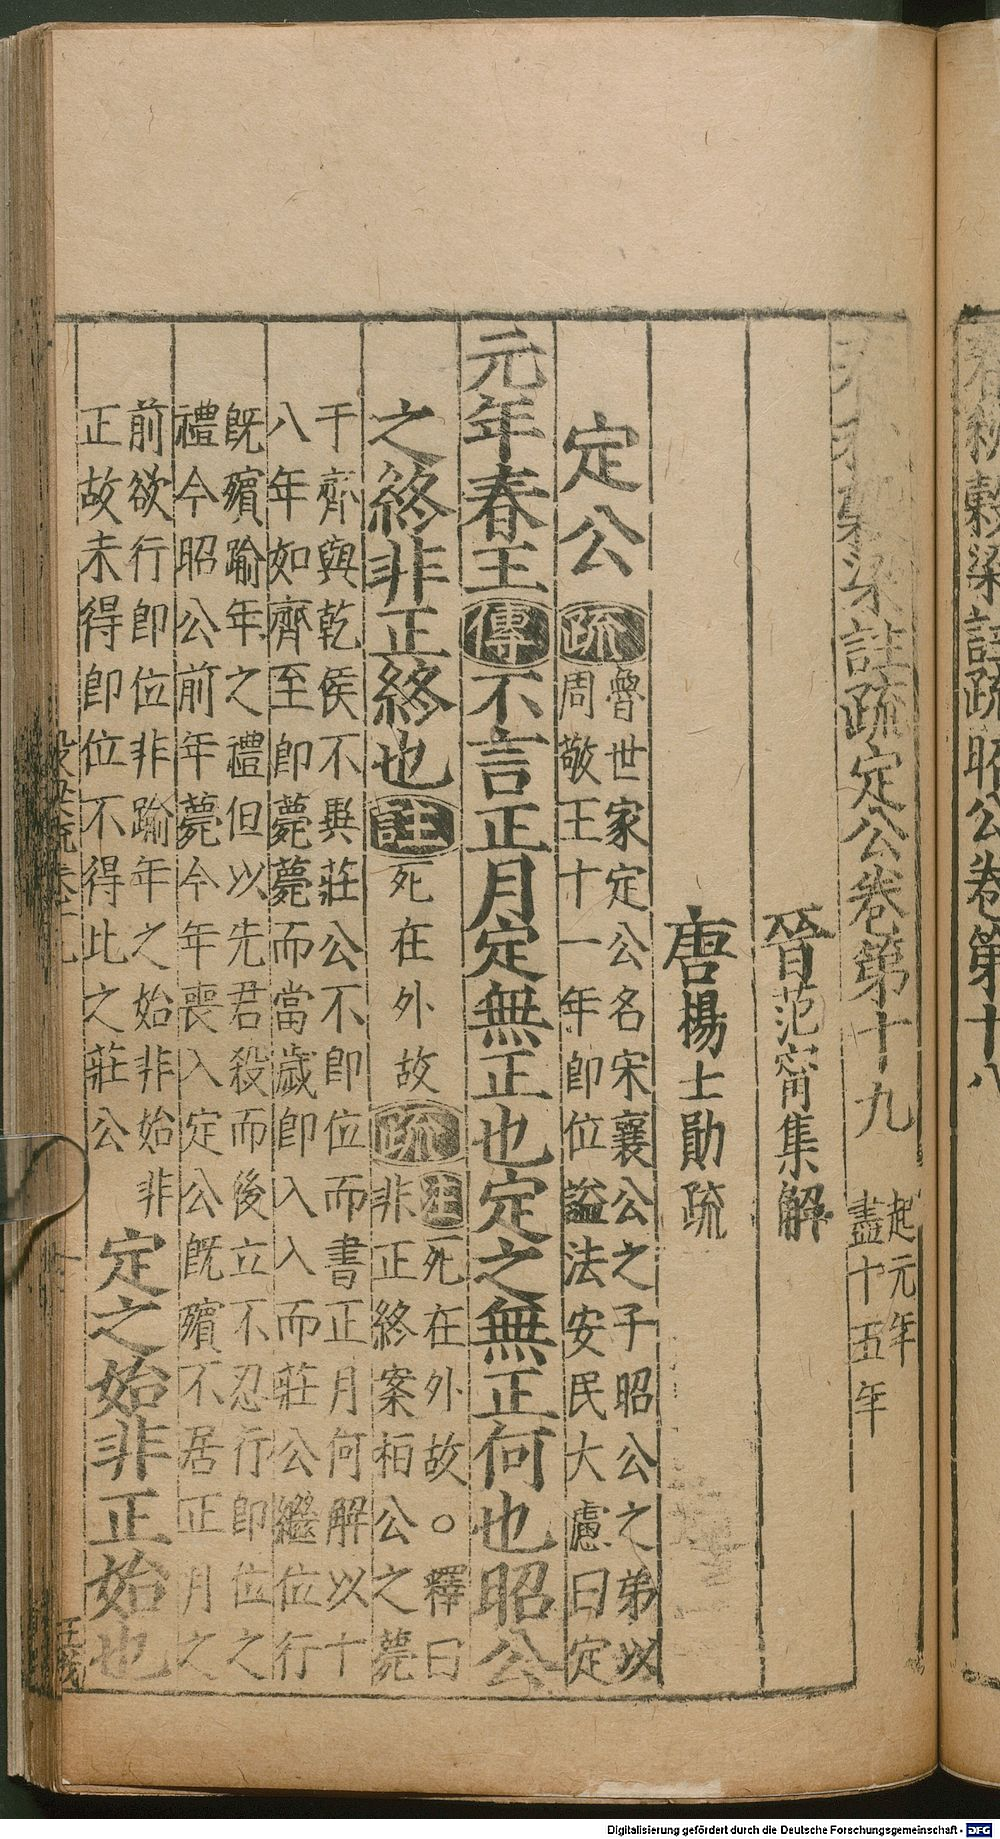 春秋穀梁註疏昭公卷第十八
春秋穀梁註疏定公卷第十九
起元年
盡十五年
晉范甯集解
唐楊士勛疏
定公疏
魯世家定公名宋襄公之子昭公之弟以
周敬王十一年即位謚法安民大慮曰定
元年春王傳不言正月定無正也定之無正何也昭公
之終非正終也註死在外故疏
註死在外故○釋曰
非正終案桓公之薨
于齊與乾侯不異莊公不即位而書正月何解以十
八年如齊至即薨薨而當歲即入入而莊公繼位行
既殯踰年之禮但以先君殺而後立不忍行即位之
禮今昭公前年薨今年喪入定公既殯不居正月之
前欲行即位非踰年之始非始非
正故未得即位不得比之莊公
定之始非正始也
Digitalisierung gefördert durch die Deutsche Forschungsgemeinschaft - DFG